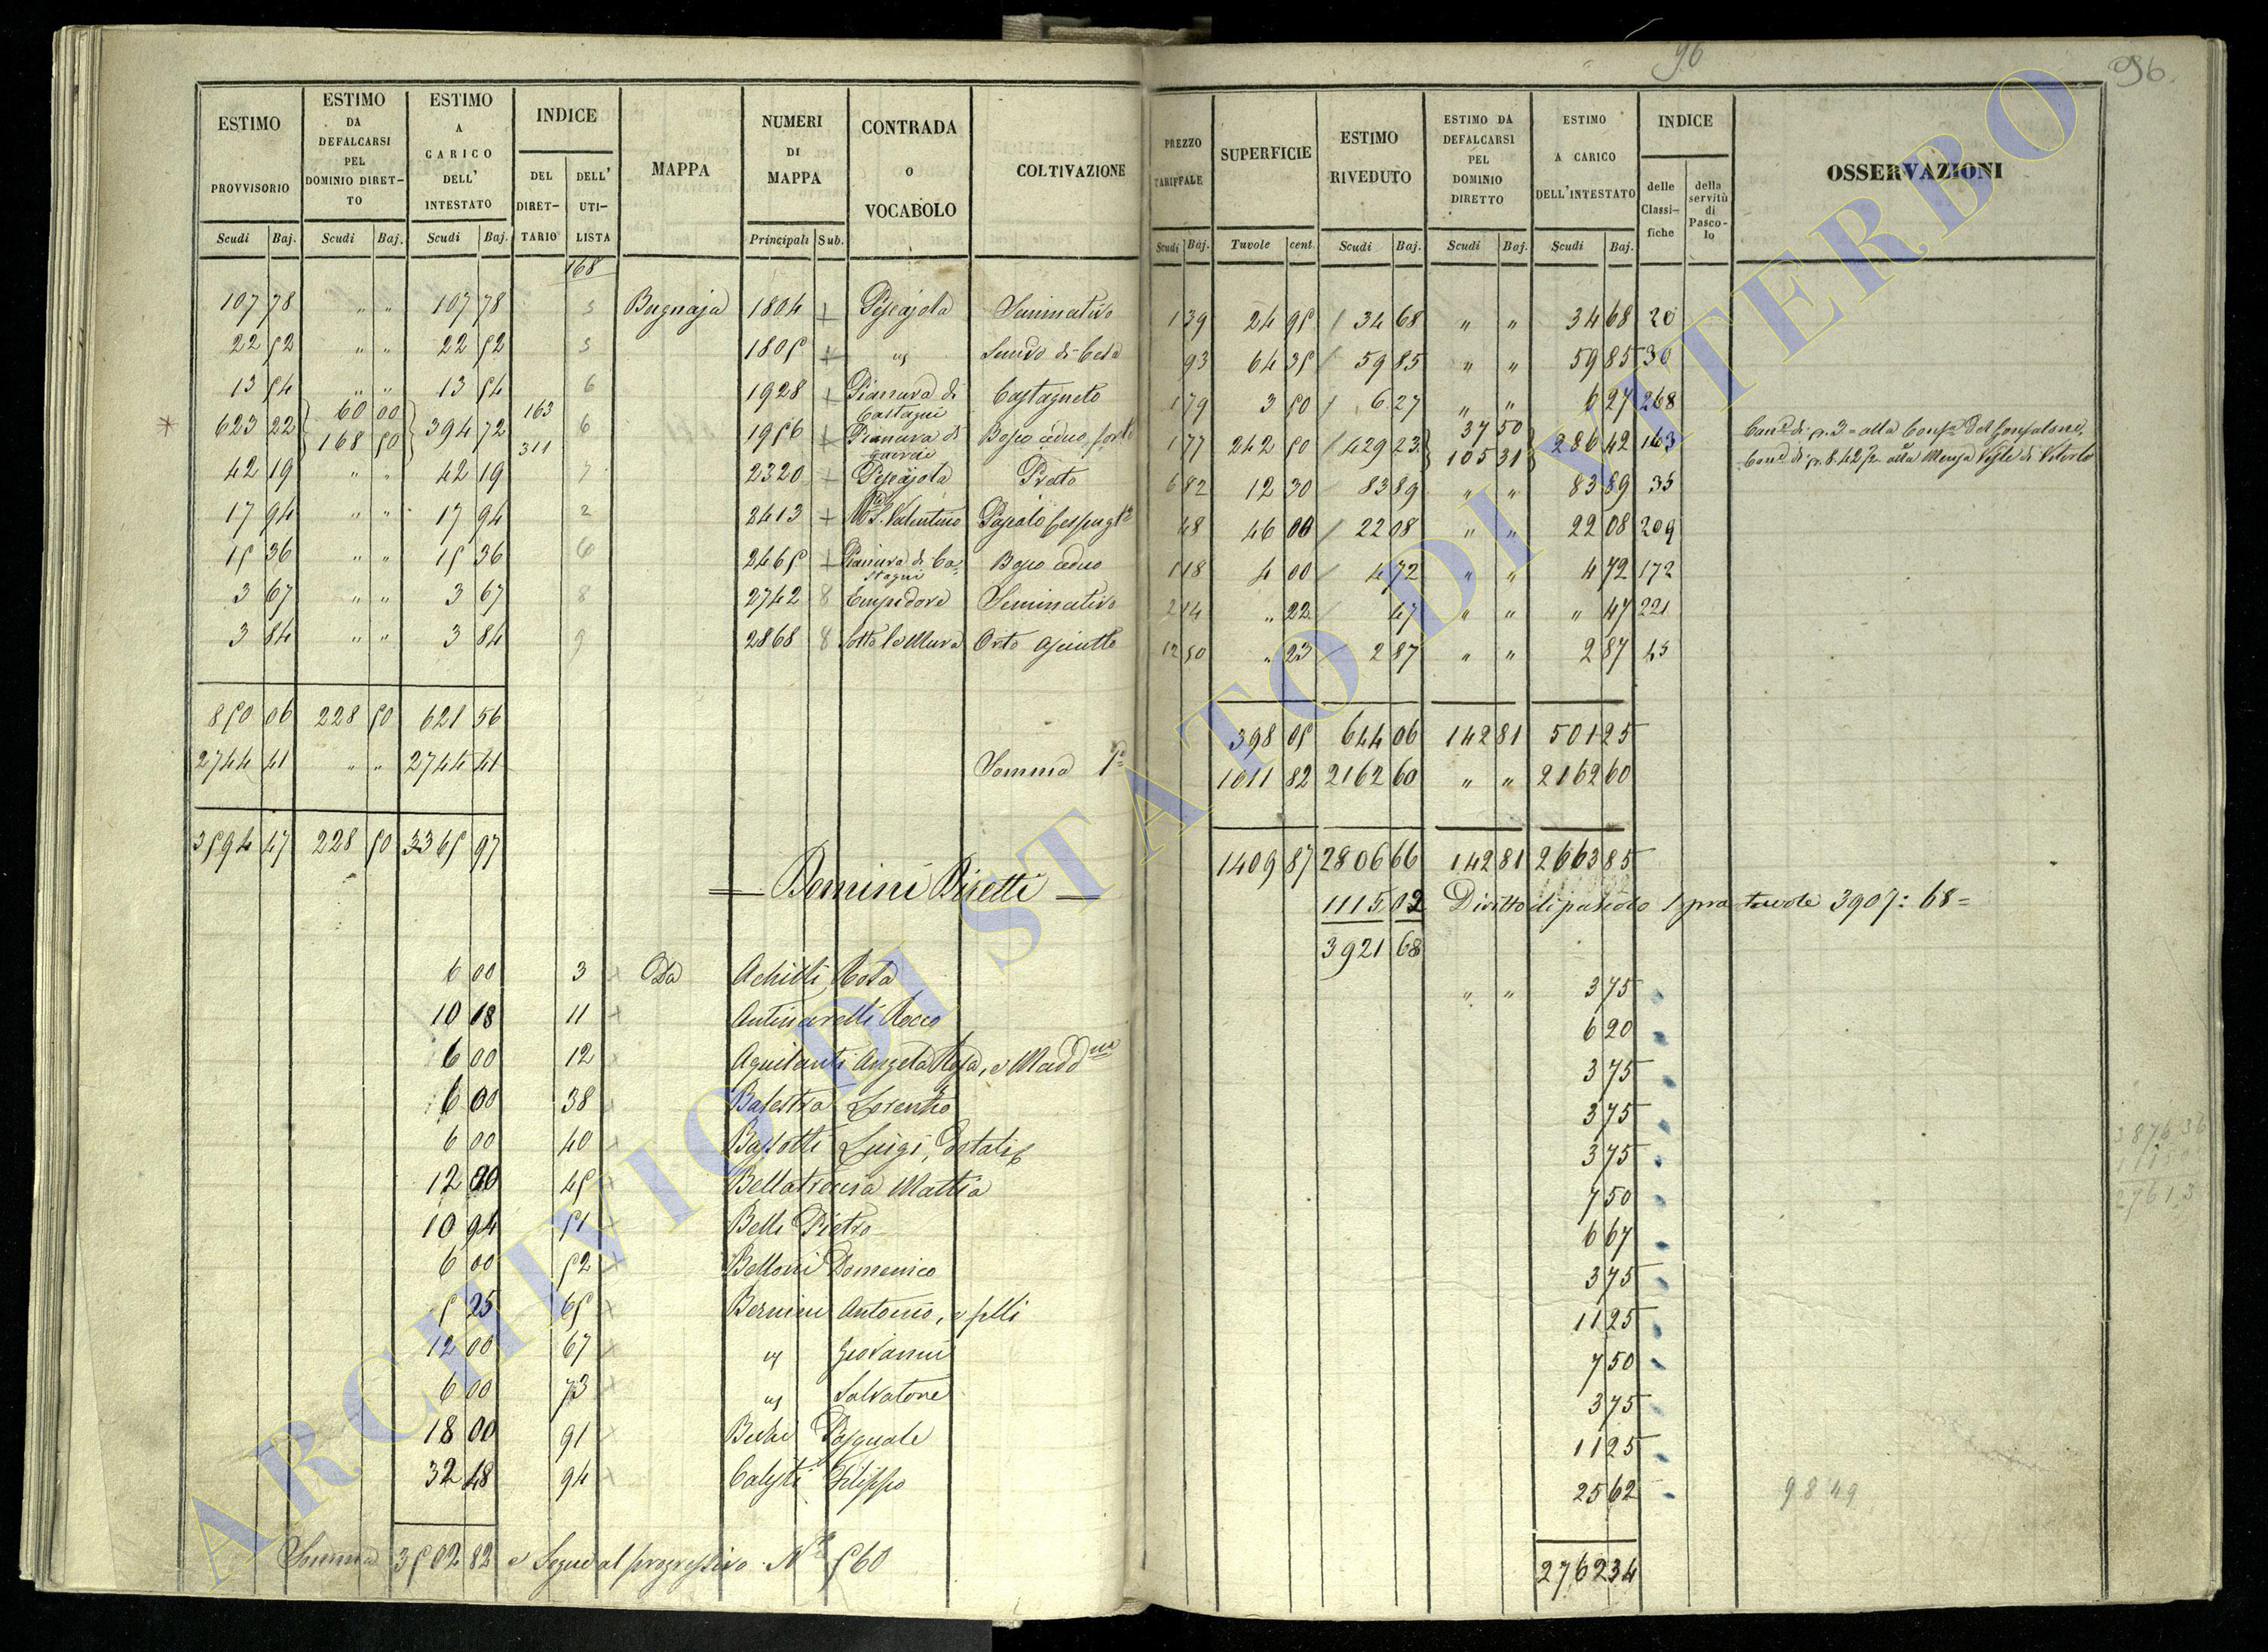 96
96.
ESTIMO PROVVISORIO
ESTIMO DA DEFALCARSI PEL DOMINIO DIRETTO
ESTIMO A CARICO DELL' INTESTATO
INDICE
DEL DIRETTARIO
DELL' UTILISTA
MAPPA
NUMERI DI MAPPA
CONTRADA O VOCABOLO
COLTIVAZIONE
PREZZO TARIFFALE
SUPERFICIE
ESTIMO RIVEDUTO
ESTIMO DA DEFALCARSI PEL DOMINIO DIRETTO
ESTIMO A CARICO DELL'INTESTATO
INDICE
delle Classifiche
della servitù di Pascolo
OSSERVAZIONI
Scudi Baj. Scudi Baj. Scudi Baj. Principali Sub. Scudi Baj. Tavole cent. Scudi Baj. Scudi Baj. Scudi Baj.
168
107 78 " " 107 78 5 Bagnaja 1804 + Pisciajola Seminativo 1 39 24 95 / 34 68 " " 34 68 20
22 52 " " 22 52 5 1805 + " Sodo di Ceta 93 64 35 / 59 85 " " 59 85 30
13 54 " " 13 54 6 1928 + Pianura di Castagni Castagneto 1 79 3 50 / 6 27 " " 6 27 268
* 623 22 60 00 168 50 394 72 163 311 6 1956 + Pianura di Bosco ceduo forte 1 77 242 50 / 429 23 37 50 105 31 286 42 163
42 19 " " 42 19 7 2320 + Pisciajola Prato 6 82 12 30 / 83 89 " " 83 89 35
17 94 " " 17 94 2 2413 + S. Valentino Pascolo 48 46 00 / 22 08 " " 22 08 209
15 36 " " 15 36 6 2465 + Pianura di Castagni Bosco ceduo 1 18 4 00 / 4 72 " " 4 72 172
3 67 " " 3 67 8 2742 8 Empidore Seminativo 2 14 " 22 / 47 " " " 47 221
3 84 " " 3 84 9 2868 8 Sotto le Mura Orto asciutto 12 50 " 23 / 2 87 " " 2 87 45
850 06 228 50 621 56 398 05 644 06 142 81 501 25
2744 41 " " 2744 41 Somma 1011 82 2162 60 " " 2162 60
3594 47 228 50 3365 97 1409 87 2806 66 142 81 2663 85
= Domini Diretti =
1115 02 Diritto di pascolo sopra tavole 3907: 68 =
3921 68
6 00 3 + Da Achilli Rosa " " 3 75
10 18 11 + Antinarelli Rocco 6 20
6 00 12 + Aquilanti Angela Rosa, e Madd.na 3 75
6 00 38 + Balestra Lorenzo 3 75
6 00 40 + Bassotti Luigi, 3 75
12 00 45 + Bellatreccia Mattia 7 50
10 94 51 + Belli Pietro 6 67
6 00 52 + Belloni Domenico 3 75
5 25 65 + Bernini Antonio, e flli 11 25
12 00 67 + " Giovanni 7 50
6 00 73 + " Salvatore 3 75
18 00 91 + Pasquale 11 25
32 48 94 + Calisti Filippo 25 62
98 49
Somma 3502 82 e Segue al progressivo N.° 560 2762 34